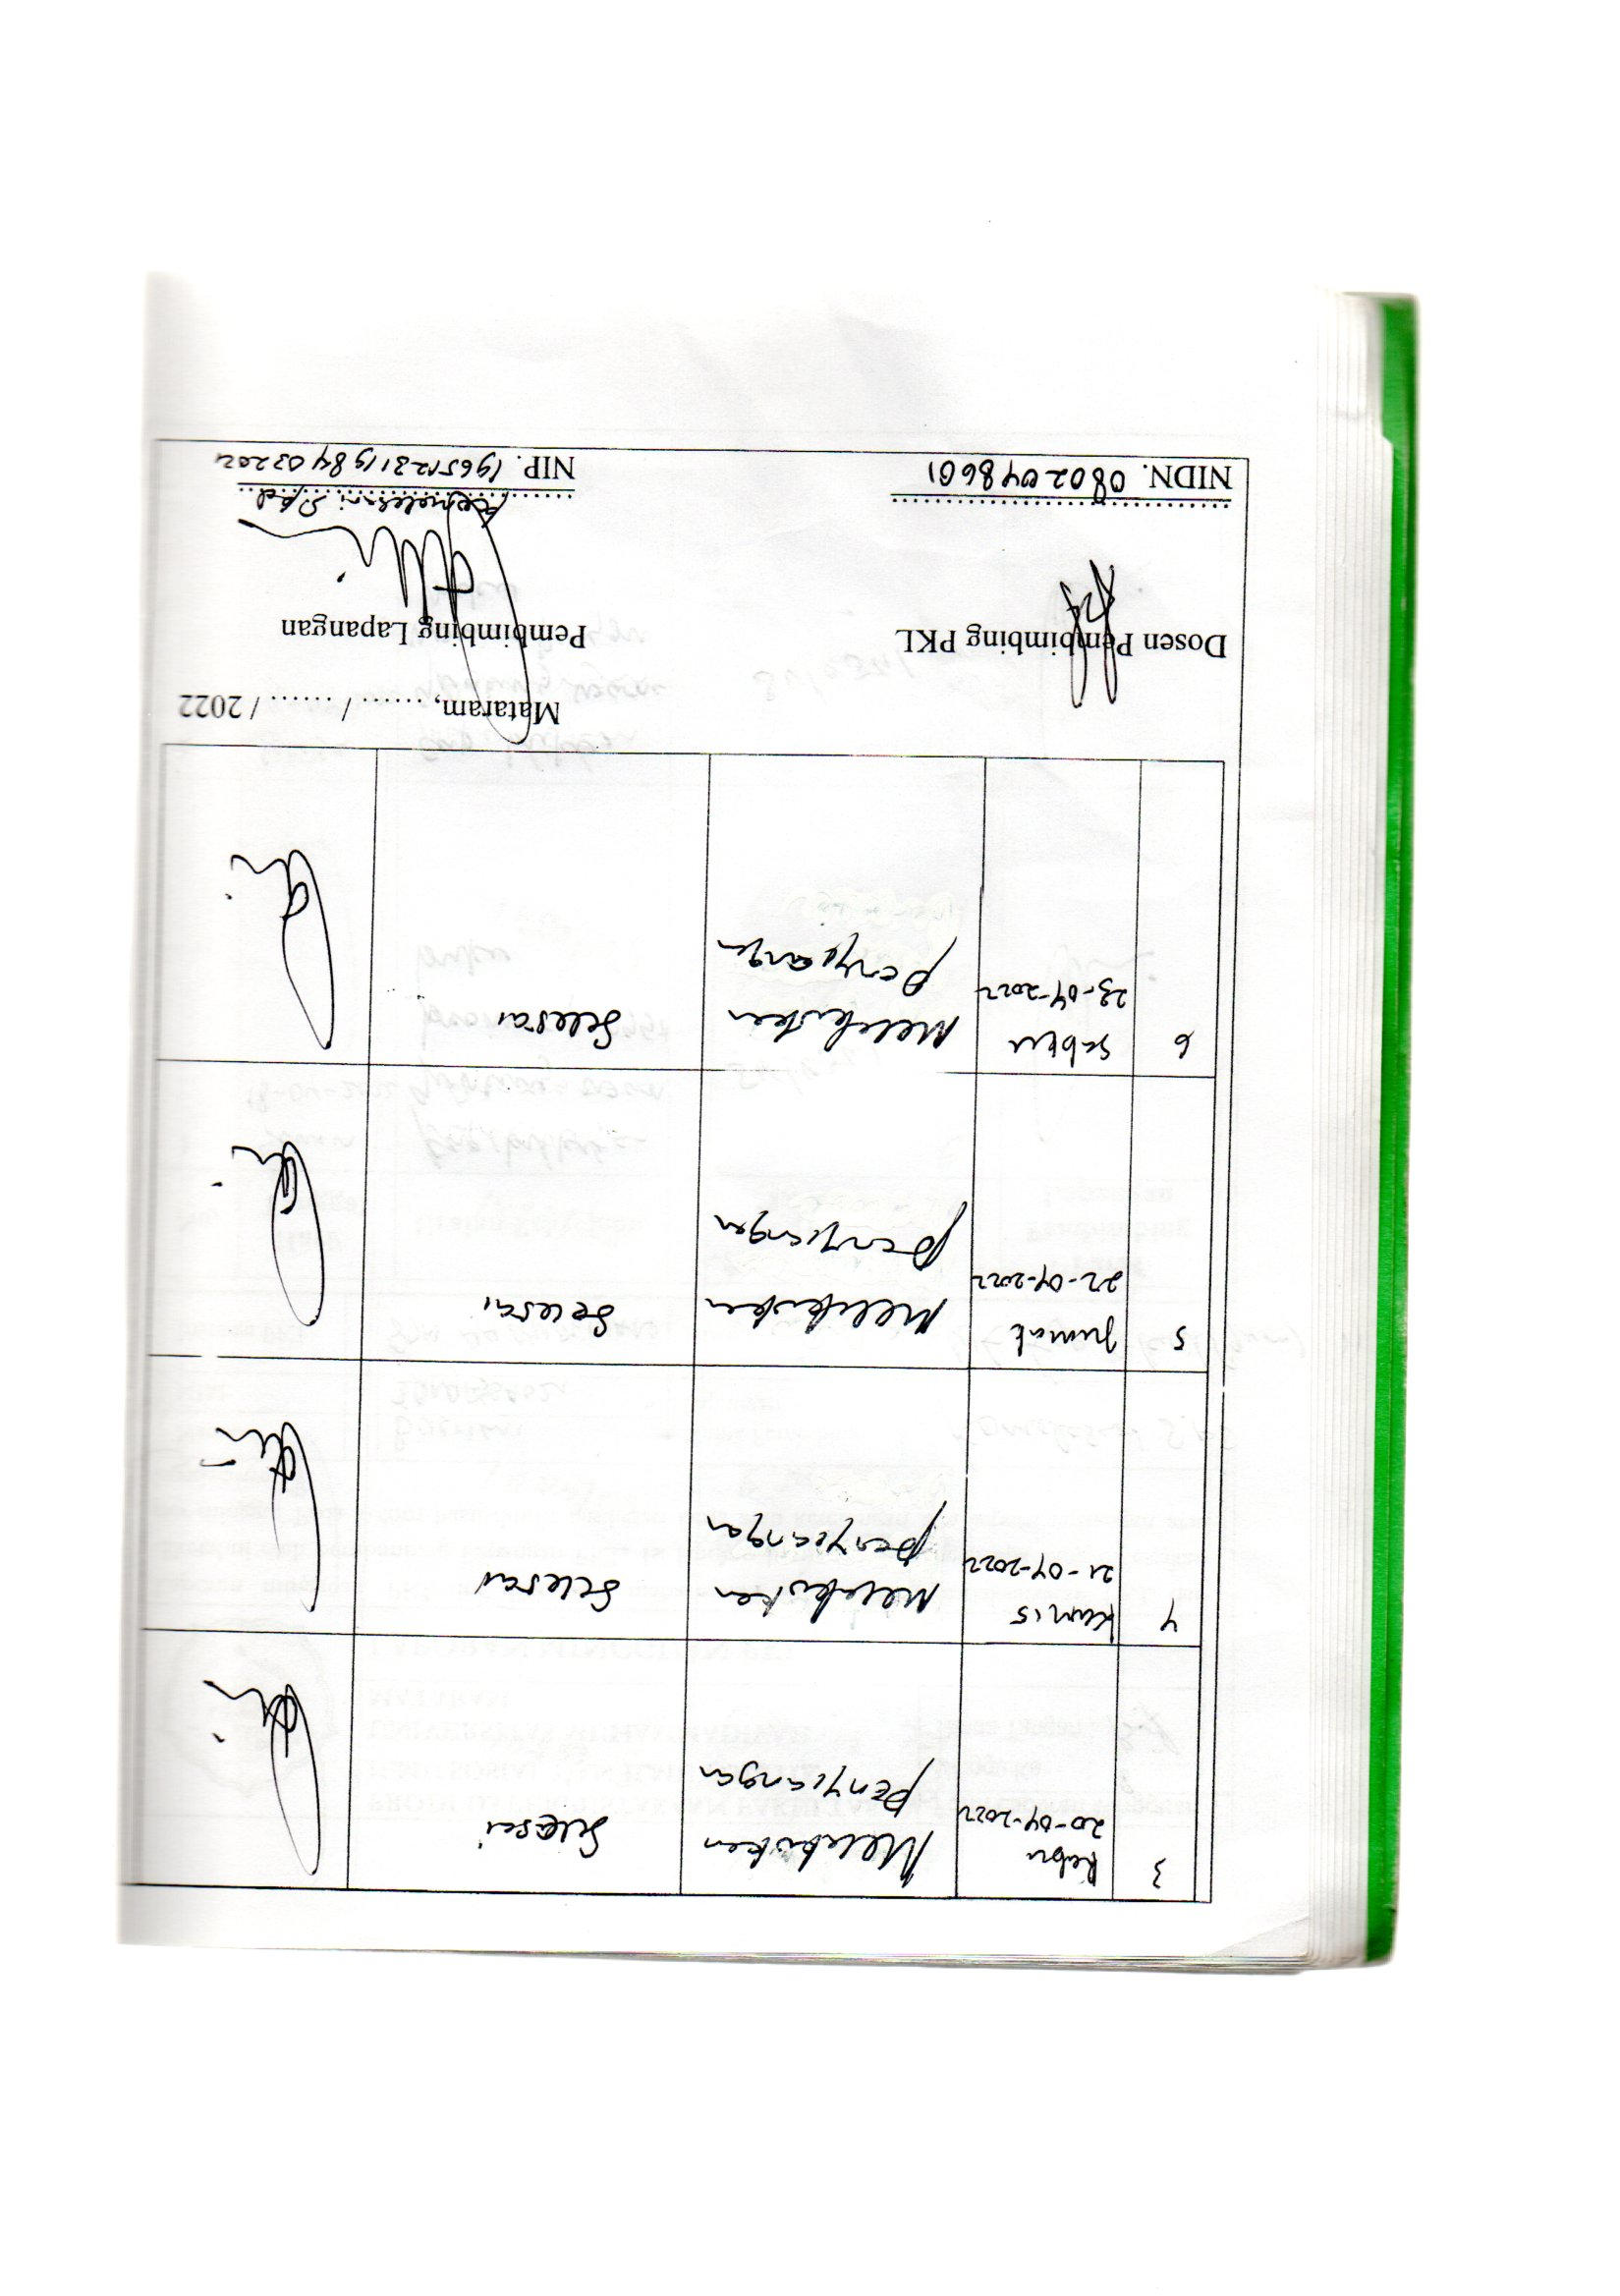 3
Rabu
20-04-2022
Melakukan
penyiangan
Selesai
4
Kamis
21-04-2022
Melakukan
penyiangan
Selesai
5
Jumat
22-04-2022
Melakukan
penyiangan
Selesai
6
Sabtu
23-04-2022
Melakukan
penyiangan
Selesai
Mataram, ...... / ...... / 2022
Dosen Pembimbing PKL
Pembimbing Lapangan
NIDN. 0802048601
NIP.